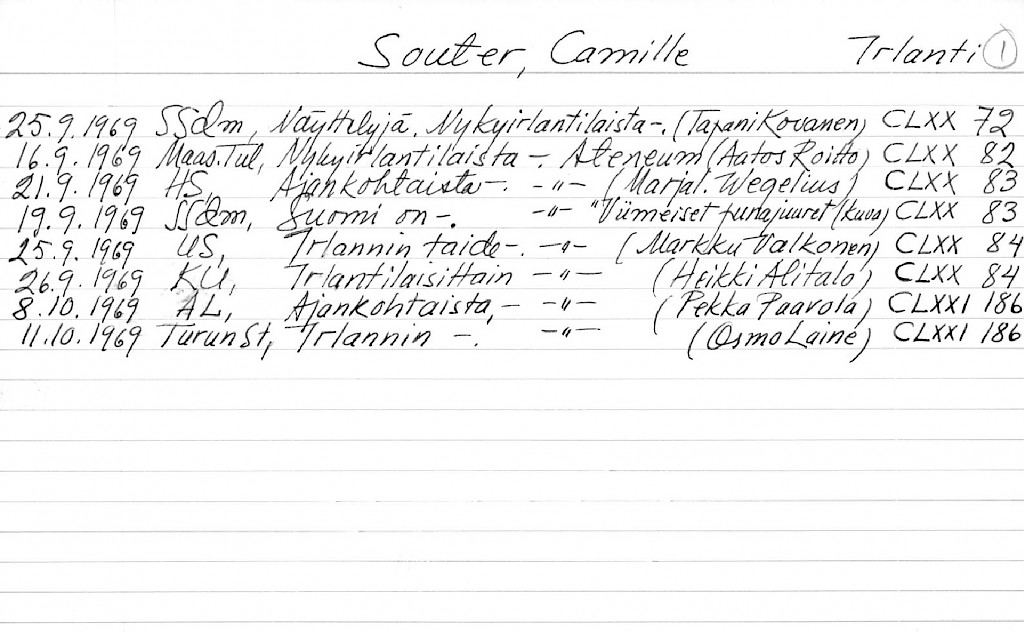 Souter, Camille Irlanti 1
25.9.1969 SSdm, Näyttelyjä. Nykyirlantilaista-. (Tapani Kovanen) CLXX 72
16.9.1969 Maas.Tul, Nykyirlantilaista -. Ateneum (Aatos Roitto) CLXX 82
21.9.1969 HS, Ajankohtaista-. -"- (Marja L. Wegelius) CLXX 83
19.9.1969 SSdm, Suomi on -. -"- "Viimeiset punajuuret (kuva) CLXX 83
25.9.1969 US, Irlannin taide-. -"- (Markku Valkonen) CLXX 84
26.9.1969 KU, Irlantilaisittain -"- (Heikki Alitalo) CLXX 84
8.10.1969 AL, Ajankohtaista, - -"- (Pekka Paavola) CLXXI 186
11.10.1969 TurunSt, Irlannin -. -"- (Osmo Laine) CLXXI 186